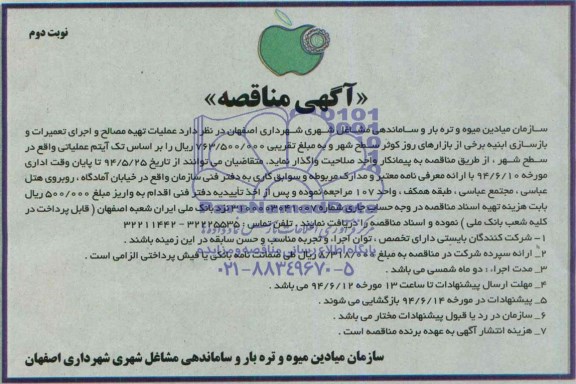 نوبت دوم
«آگهی مناقصه»
سازمان میادین میوه و تره بار و ساماندهی مشاغل شهری شهرداری اصفهان در نظر دارد عملیات تهیه مصالح و اجرای تعمیرات و
بازسازی ابنیه برخی از بازارهای روز کوثر سطح شهر و به مبلغ تقریبی ۷۶۳/۵۰۰/۰۰۰ ریال را بر اساس تک آیتم عملیاتی واقع در
سطح شهر ، از طریق مناقصه به پیمانکار واجد صلاحیت واگذار نماید. متقاضیان می توانند از تاریخ ۹۴/۵/۲۵ تا پایان وقت اداری
مورخه ۹۴/۶/۱۰ با ارائه معرفی نامه معتبر و مدارک مربوطه و سوابق کاری به دفتر فنی سازمان واقع در خیابان آمادگاه ، روبروی هتل
عباسی ، مجتمع عباسی ، طبقه همکف ، واحد ۱۰۷ مراجعه نموده و پس از اخذ تأییدیه دفتر فنی اقدام به واریز مبلغ ۵۰۰/۰۰۰ ریال
بابت هزینه تهیه اسناد مناقصه در وجه حساب جاری شماره نزد بانک ملی ایران شعبه اصفهان ( قابل پرداخت در
کلیه شعب بانک ملی ) نموده و اسناد مناقصه را دریافت نمایند . تلفن تماس : ۳۲۲۲۵۵۳۵ - ۳۲۲۱۱۴۴۲
۱_ شرکت کنندگان بایستی دارای تخصص ، توان اجراء و تجربه مناسب و حسن سابقه در این زمینه باشند .
۲_ ارائه سپرده شرکت در مناقصه به مبلغ ریال طی ضمانت نامه بانکی یا فیش پرداختی الزامی است .
۳_ مدت اجراء : دو ماه شمسی می باشد .
۴_ مهلت ارسال پیشنهادات تا ساعت ۱۳ مورخه ۹۴/۶/۱۲ می باشد .
۵_ پیشنهادات در مورخه ۹۴/۶/۱۴ بازگشایی می شوند .
۶_ سازمان در رد یا قبول پیشنهادات مختار می باشد .
۷_ هزینه انتشار آگهی به عهده برنده مناقصه است .
سازمان میادین میوه و تره بار و ساماندهی مشاغل شهری شهرداری اصفهان
پایگاه اطلاع رسانی مناقصه و مزایده
۰۲۱-۸۸۳۴۹۶۷۰-۵